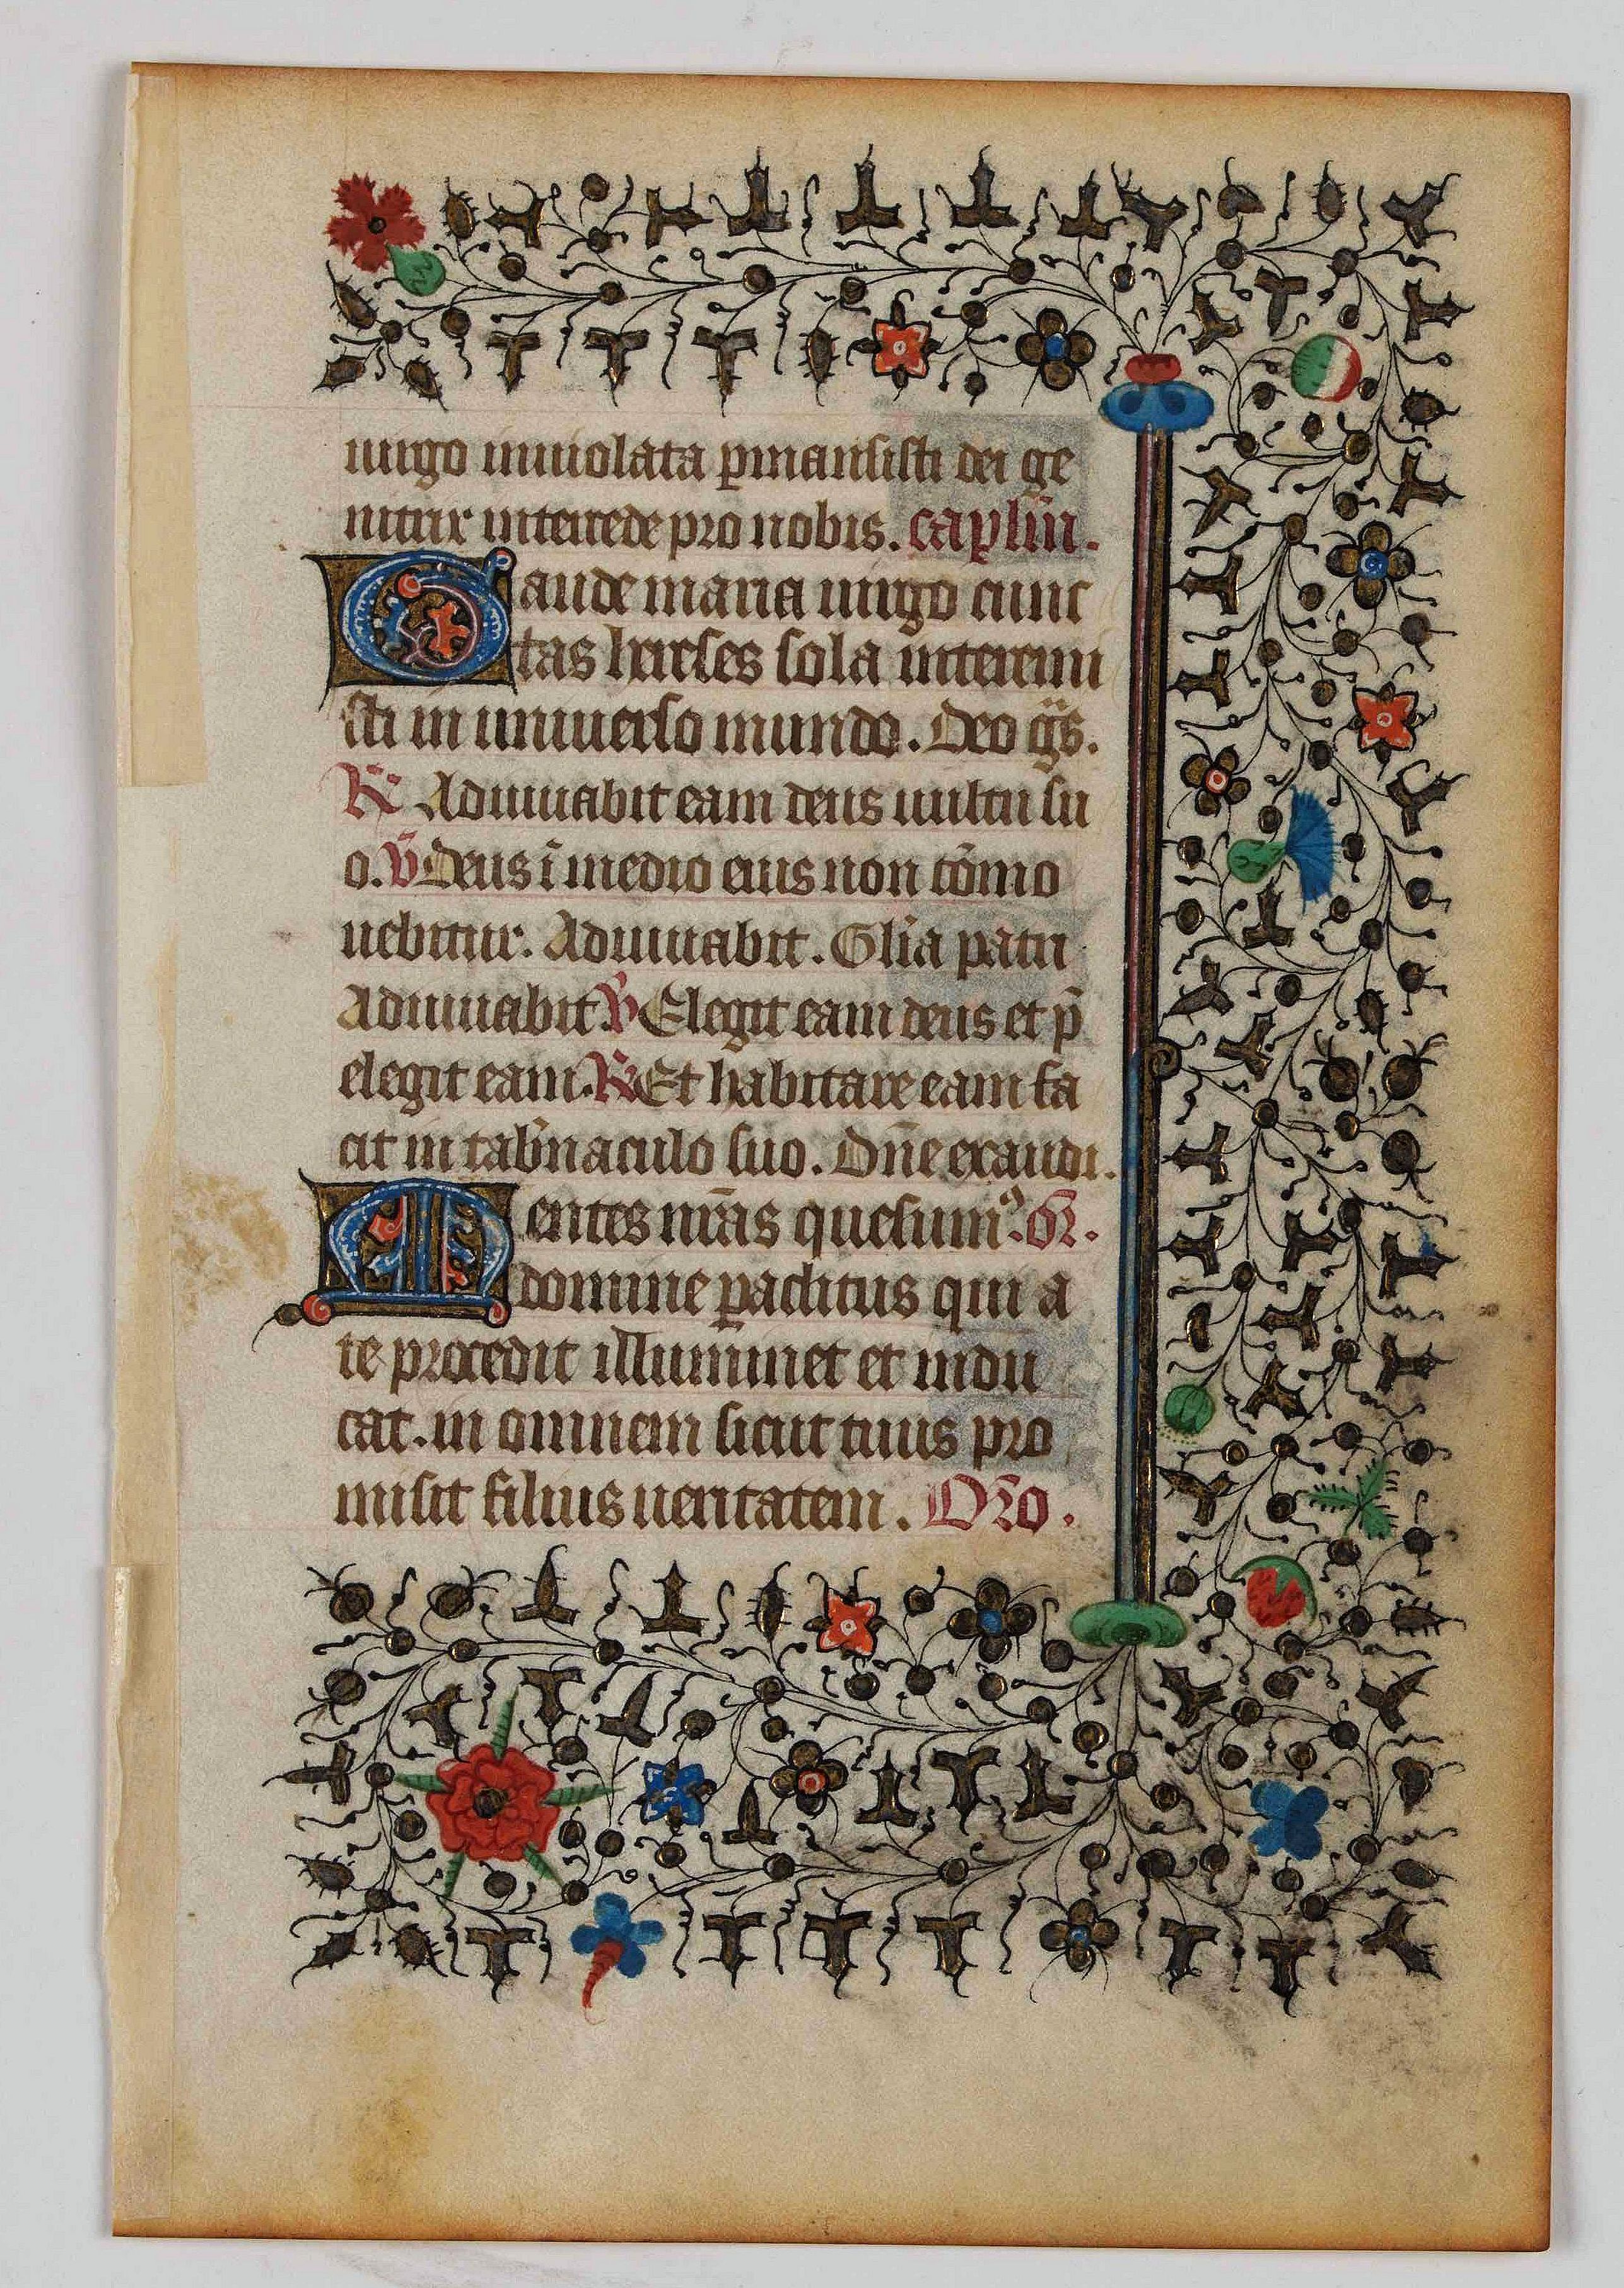 uirgo inuiolata p̄mansisti dei ge
nitrix intercede pro nobis. cap̄lm̄.
Gaude maria uirgo cunc
tas hereses sola interemi
sti in uniuerso mundo. Deo gr̄s.
R̄ Adiuuabit eam deus uultu su
o. V̄ Deus ī medio eius non cōmo
uebitur. Adiuuabit. Glīa patri
Adiuuabit. V̄ Elegit eam deus et p̄
elegit eam. R̄ Et habitare eam fa
cit in tab̄naculo suo. Dn̄e exaudi.
Mentes nr̄as quesumꝰ. añ.
domine paclitus qui a
te procedit illuminet et indu
cat. in omnem sicut tuus pro
misit filius ueritatem. Or̄o.